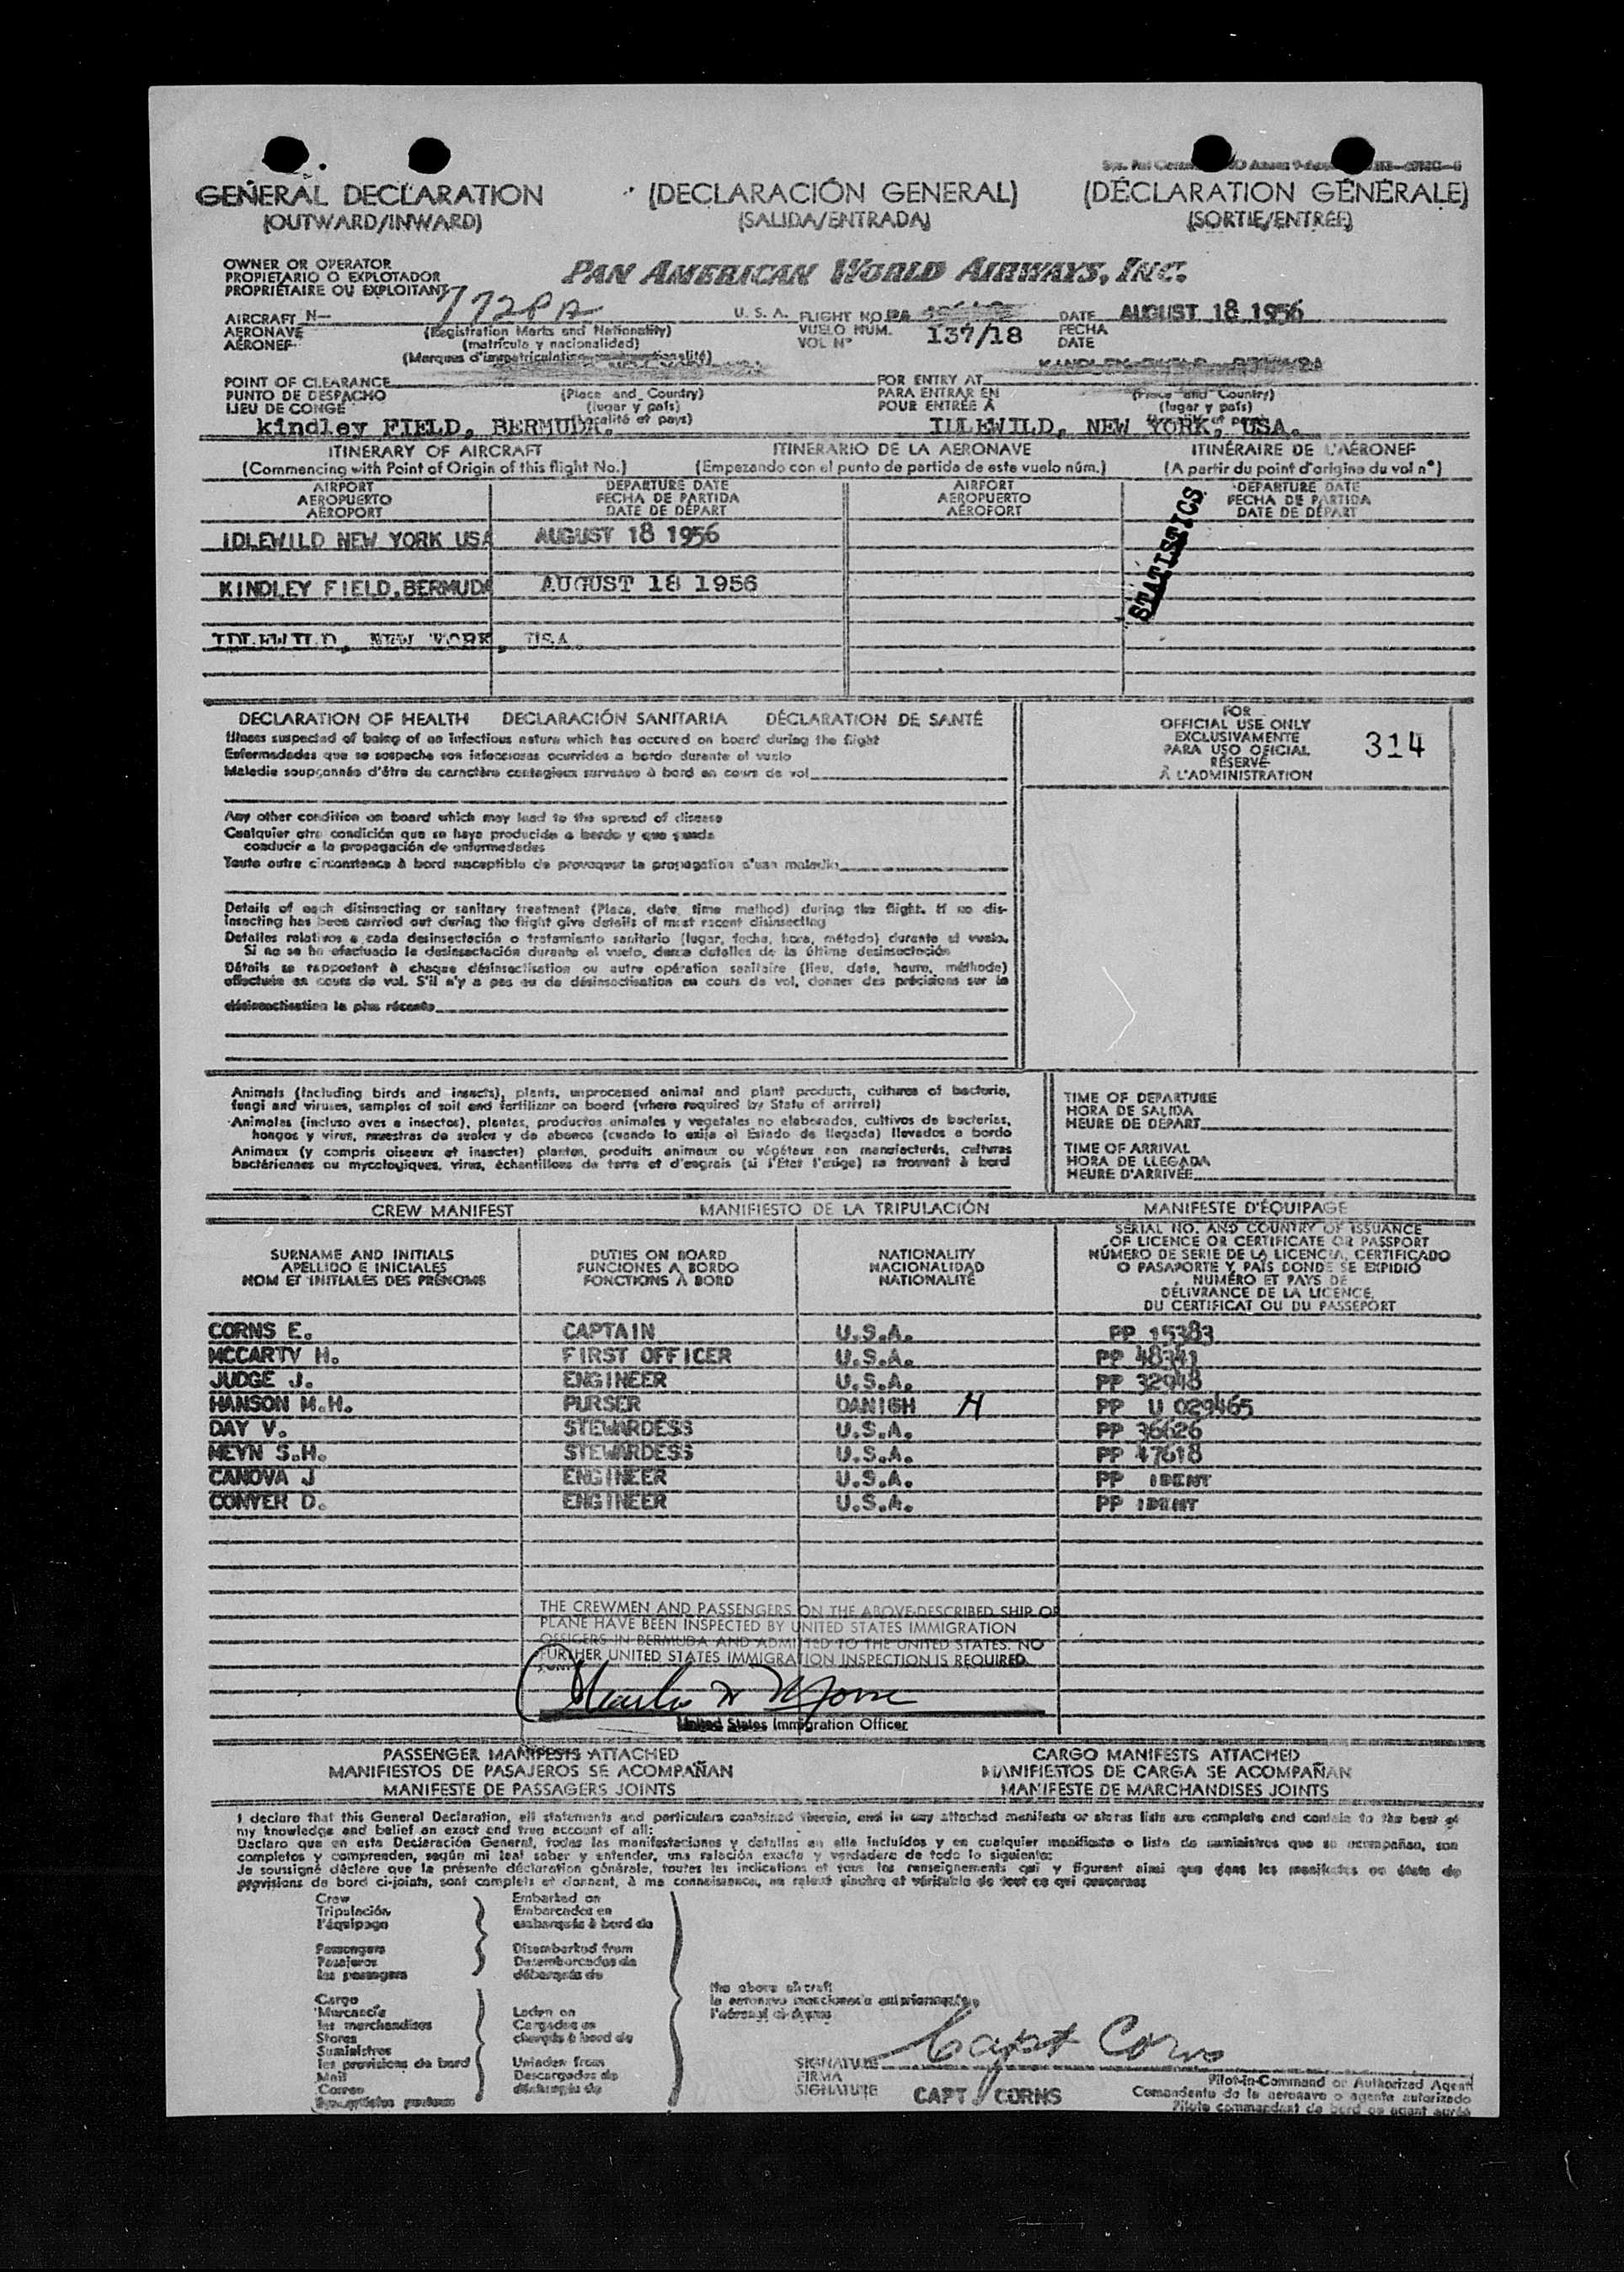 GENERAL DECLARATION (DECLARACIÓN GENERAL) (DÉCLARATION GÉNÉRALE)
(OUTWARD/INWARD) (SALIDA/ENTRADA) (SORTIE/ENTRÉE)
OWNER OR OPERATOR
PROPIETARIO O EXPLOTADOR
PROPRIÉTAIRE OU EXPLOITANT
PAN AMERICAN WORLD AIRWAYS, INC.
AIRCRAFT N- U. S. A. FLIGHT NO. PA DATE AUGUST 18 1956
AERONAVE (Registration Marks and Nationality) VUELO NUM. 137/18 FECHA
AÉRONEF (matrícula y nacionalidad) VOL Nº DATE
(Marques d'immatriculation
POINT OF CLEARANCE FOR ENTRY AT
PUNTO DE DESPACHO (Place and Country) PARA ENTRAR EN (Place and Country)
LIEU DE CONGÉ (lugar y país) POUR ENTRÉE À (lugar y país)
kindley FIELD, BERMUDA. IDLEWILD, NEW YORK, USA.
ITINERARY OF AIRCRAFT ITINERARIO DE LA AERONAVE ITINÉRAIRE DE L'AÉRONEF
(Commencing with Point of Origin of this flight No.) (Empezando con el punto de partida de este vuelo núm.) (A partir du point d'origine du vol nº)
AIRPORT DEPARTURE DATE AIRPORT DEPARTURE DATE
AEROPUERTO FECHA DE PARTIDA AEROPUERTO FECHA DE PARTIDA
AÉROPORT DATE DE DÉPART AÉROPORT DATE DE DÉPART
STATISTICS
IDLEWILD NEW YORK USA AUGUST 18 1956
KINDLEY FIELD, BERMUDA AUGUST 18 1956
IDLEWILD, NEW YORK, USA.
DECLARATION OF HEALTH DECLARACIÓN SANITARIA DÉCLARATION DE SANTÉ
Illness suspected of being of an infectious nature which has occured on board during the flight
Enfermedades que se sospeche son infecciosas ocurridas a bordo durante el vuelo
Maladie soupçonnée d'être de caractère contagieux survenue à bord en cours de vol
FOR
OFFICIAL USE ONLY
EXCLUSIVAMENTE
PARA USO OFICIAL
RÉSERVÉ
À L'ADMINISTRATION
314
Any other condition on board which may lead to the spread of disease
Cualquier otra condición que se haya producido a bordo y que pueda
conducir a la propagación de enfermedades
Toute autre circonstance à bord susceptible de provoquer la propagation d'une maladie
Details of each disinsecting or sanitary treatment (Place, date, time method) during the flight. If no dis-
insecting has been carried out during the flight give details of most recent disinsecting
Detalles relativos a cada desinsectación o tratamiento sanitario (lugar, fecha, hora, método) durante el vuelo.
Si no se ha efectuado la desinsectación durante el vuelo, dense detalles de la última desinsectación
Détails se rapportant à chaque désinsectisation ou autre opération sanitaire (lieu, date, heure, méthode)
effectuée en cours de vol. S'il n'y a pas eu de désinsectisation en cours de vol, donner des précisions sur la
désinsectisation la plus récente
Animals (including birds and insects), plants, unprocessed animal and plant products, cultures of bacteria,
fungi and viruses, samples of soil and fertilizer on board (where required by State of arrival)
Animales (incluso aves e insectos), plantas, productos animales y vegetales no elaborados, cultivos de bacterias,
hongos y virus, muestras de suelos y de abonos (cuando lo exija el Estado de llegada) llevados a bordo
Animaux (y compris oiseaux et insectes) plantes, produits animaux ou végétaux non manufacturés, cultures
bactériennes ou mycologiques, virus, échantillons de terre et d'engrais (si l'État l'exige) se trouvant à bord
TIME OF DEPARTURE
HORA DE SALIDA
HEURE DE DÉPART
TIME OF ARRIVAL
HORA DE LLEGADA
HEURE D'ARRIVÉE
CREW MANIFEST MANIFIESTO DE LA TRIPULACIÓN MANIFESTE D'ÉQUIPAGE
SURNAME AND INITIALS
APELLIDO E INICIALES
NOM ET INITIALES DES PRÉNOMS
DUTIES ON BOARD
FUNCIONES A BORDO
FONCTIONS À BORD
NATIONALITY
NACIONALIDAD
NATIONALITÉ
SERIAL NO. AND COUNTRY OF ISSUANCE
OF LICENCE OR CERTIFICATE OR PASSPORT
NÚMERO DE SERIE DE LA LICENCIA, CERTIFICADO
O PASAPORTE Y PAÍS DONDE SE EXPIDIÓ
NUMÉRO ET PAYS DE
DÉLIVRANCE DE LA LICENCE,
DU CERTIFICAT OU DU PASSEPORT
CORNS E. CAPTAIN U.S.A. PP 15383
MCCARTY H. FIRST OFFICER U.S.A. PP 48341
JUDGE J. ENGINEER U.S.A. PP 32948
HANSON M.H. PURSER DANISH H PP U 029465
DAY V. STEWARDESS U.S.A. PP 36626
MEYN S.H. STEWARDESS U.S.A. PP 47618
CANOVA J ENGINEER U.S.A. PP IDENT
CONYER D. ENGINEER U.S.A. PP IDENT
THE CREWMEN AND PASSENGERS ON THE ABOVE-DESCRIBED SHIP OR
PLANE HAVE BEEN INSPECTED BY UNITED STATES IMMIGRATION
OFFICERS IN BERMUDA AND ADMITTED TO THE UNITED STATES. NO
FURTHER UNITED STATES IMMIGRATION INSPECTION IS REQUIRED.
United States Immigration Officer
PASSENGER MANIFESTS ATTACHED CARGO MANIFESTS ATTACHED
MANIFIESTOS DE PASAJEROS SE ACOMPAÑAN MANIFIESTOS DE CARGA SE ACOMPAÑAN
MANIFESTE DE PASSAGERS JOINTS MANIFESTE DE MARCHANDISES JOINTS
I declare that this General Declaration, all statements and particulars contained therein, and in any attached manifests or stores lists are complete and contain to the best of
my knowledge and belief an exact and true account of all:
Declaro que en esta Declaración General, todas las manifestaciones y detalles en ella incluidos y en cualquier manifiesto o lista de suministros que se acompañan, son
completos y comprenden, según mi leal saber y entender, una relación exacta y verdadera de todo lo siguiente:
Je soussigné déclare que la présente déclaration générale, toutes les indications et tous les renseignements qui y figurent ainsi que dans les manifestes ou états de
provisions de bord ci-joints, sont complets et donnent, à ma connaissance, un relevé sincère et véritable de tout ce qui concerne:
Crew Embarked on
Tripulación Embarcados en
l'équipage embarqués à bord de
Passengers Disembarked from
Pasajeros Desembarcados de
les passagers débarqués de
Cargo
Mercancía Laden on
les marchandises Cargados en
Stores chargés à bord de
Suministros
les provisions de bord Unladen from
Mail Descargados de
Correo
the above aircraft
la aeronave mencionada anteriormente
Capt Corns
SIGNATURE
FIRMA
SIGNATURE
CAPT CORNS
Pilot-in-Command or Authorized Agent
Comandante de la aeronave o agente autorizado
Pilote commandant de bord ou agent agréé